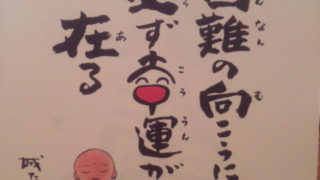 困難の向こうに
んなん む
必ず幸運が
らこううん
在る
あ